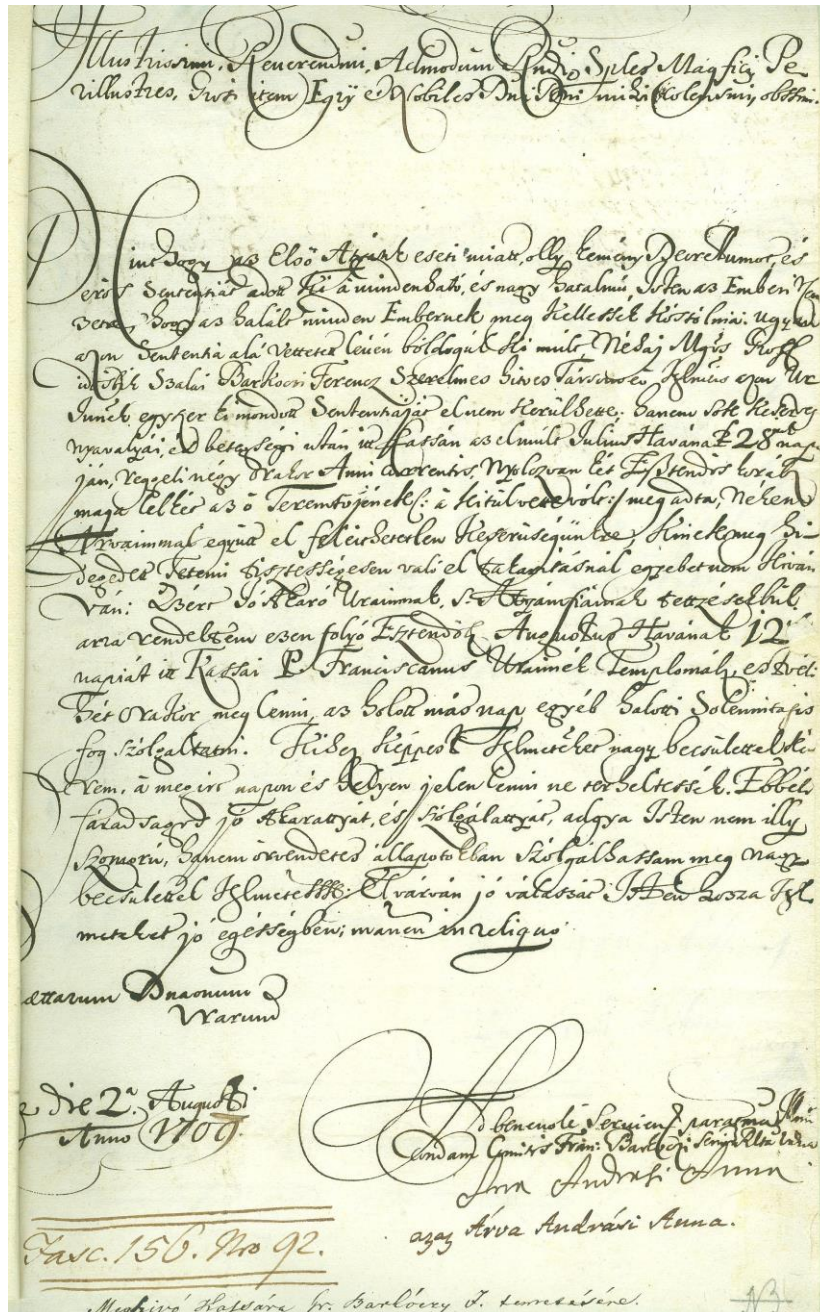 Illustrissimi, Reverendmi, Admodum Rndi, Sples Magfici, Pe
rillustres, Grosi item Egry e Nobiles Dni Dni mihi Colensmi, obssmi.
Mint hogy az Elsö Atyánk eseti miatt, olly kemény Decretumot, és
erös Sententiát adott ki à mindenható, és nagy hatalmú Isten az Emberi Nem
hogy az halált minden Embernek meg kellessék kóstolnia: ugyan
azon Sententia alá vettetett lévén bóldogúl ki múlt, Néhaj Mgős Groff
Szalai Barkoczi Ferencz Szerelmes hitves Társom is, azon Ur
Junék egyszer ki mondott Sententiáját el nem kerülhette; hanem sok keserves
nyavalyái, és betegségi után itt Kassán az elmúlt Julius Havának 28 nap
ján, reggeli négy órakor Anni currentis, Nyolczvan két Esztendős korába
maga lelkét az ő Teremtőjének (: à kitül vette vólt :) meg adta, nékem
Arvaimmal együtt el felejthetetlen keserüségünkre, kinek meg hi-
degedett Tetemi tisztességesen való el takaritásnál egyebet nem kiván
ván: Azért Jó Akaró Uraimnak, s. Attyámfiainak tettzésekbül
arra rendeltem ezen folyó Esztendőb. Augustus Havának 12
napját itt Kassai P. Franciscanus Uraimék Templomáb. estvéli
hét órakor meg lenni, az holott más nap egyéb halotti Solennitas is
fog szólgáltatni. Kihez képpest Kglmeteket nagy becsülettel ké-
rem, à megirt napon és helyen jelen lenni ne terheltessék. Ebbéli
fáradságos jó Akarattyát, és szólgálattyát, adgya Isten nem illy
szomorú, hanem örvendetes állapotokban szólgálhassam meg nagy
becsülettel Kglmeteknek: El várván jó válaszát Isten hozza Kgl
meteket jó egésségben; maneo in reliquo
ettarum Dnaonum
Vrarum
die 2ª. Augusti
Anno 1709.
Ad benevolé Serviend paratma
condam Comitis Fran: Barkoczi Senioris
Árva Andrási Anna
azaz Árva Andrási Anna.
Fasc. 156. Nro 92.
Meghivó Kassára Gr. Barkóczy F. temetésére.